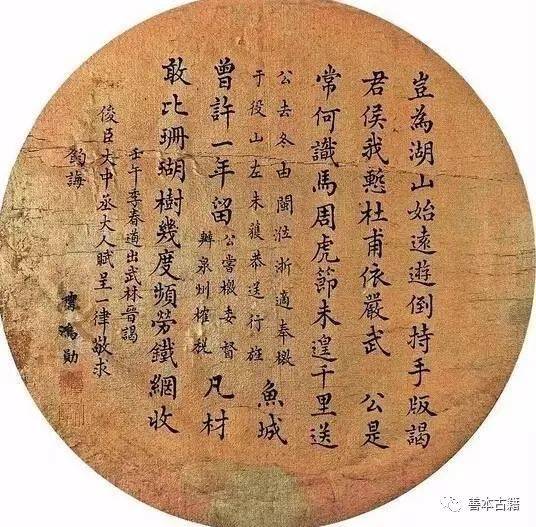 豈為湖山始遠遊倒持手版謁
君侯我慙杜甫依嚴武　公是
常何識馬周虎節未遑千里送
公去冬由閩涖浙適奉檄
于役山左未獲恭送行旌
魚城
曾許一年留
公嘗檄委督
辦泉州榷稅
凡材
敢比珊瑚樹幾度頻勞鐵網收
壬午季春道出武林晉謁
俊臣大中丞大人賦呈一律敬求
鈞誨
鴻勛
善本古籍